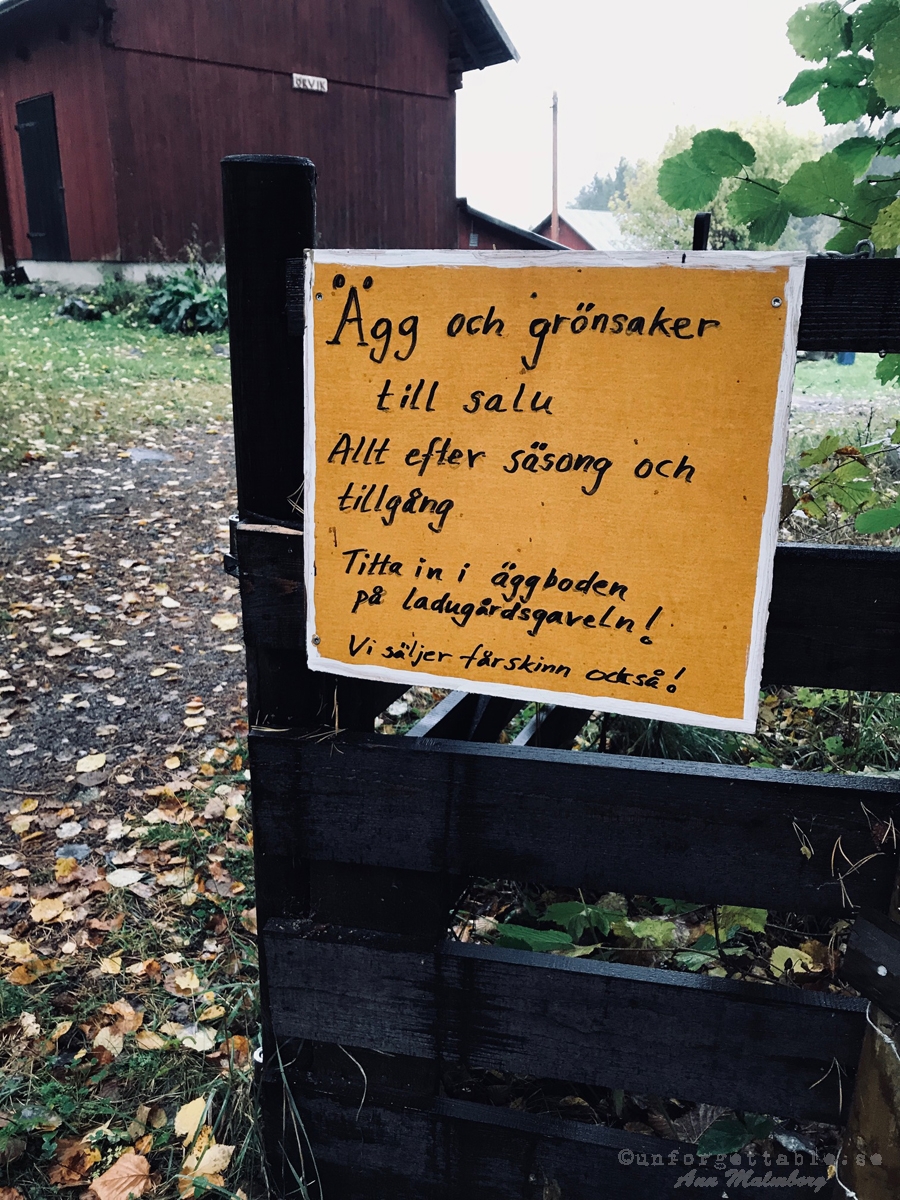 ÖRVIK
Ägg och grönsaker
till salu
Allt efter säsong och
tillgång
Titta in i äggboden
på ladugårdsgaveln!
Vi säljer fårskinn också!
©unforgettable.se
Ann Malmborg